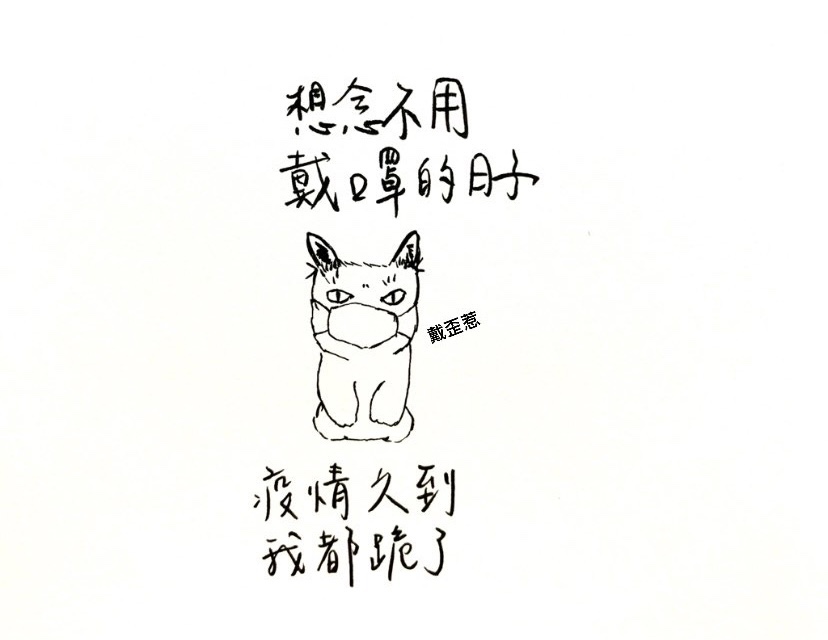 想念不用
戴口罩的日子
戴歪惹
疫情久到
我都跪了